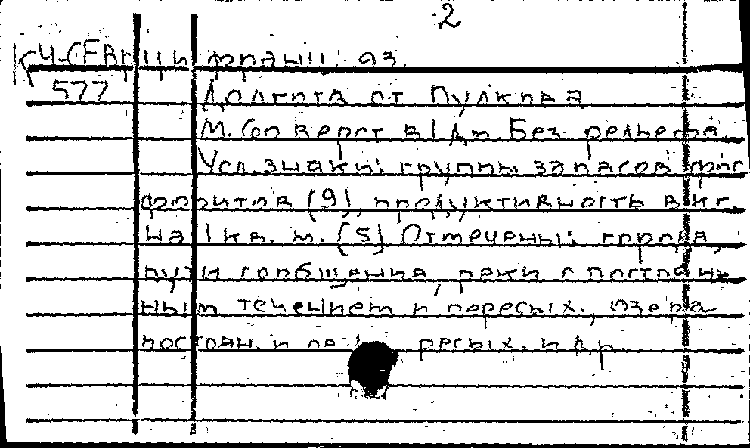 2
КЧ-СЕВР ЦИ франц. яз.
577 Долгота от Пулкова
М. 60 верст в 1 дм. Без рельефа
Усл. знаки: группы запасов фос
форитов (9), продуктивность в кг.
на 1 кв. м. (5) Отмечены: города,
пути сообщения, реки с постоян
ным течением и пересых., озера
постоян. и пересых. и др.